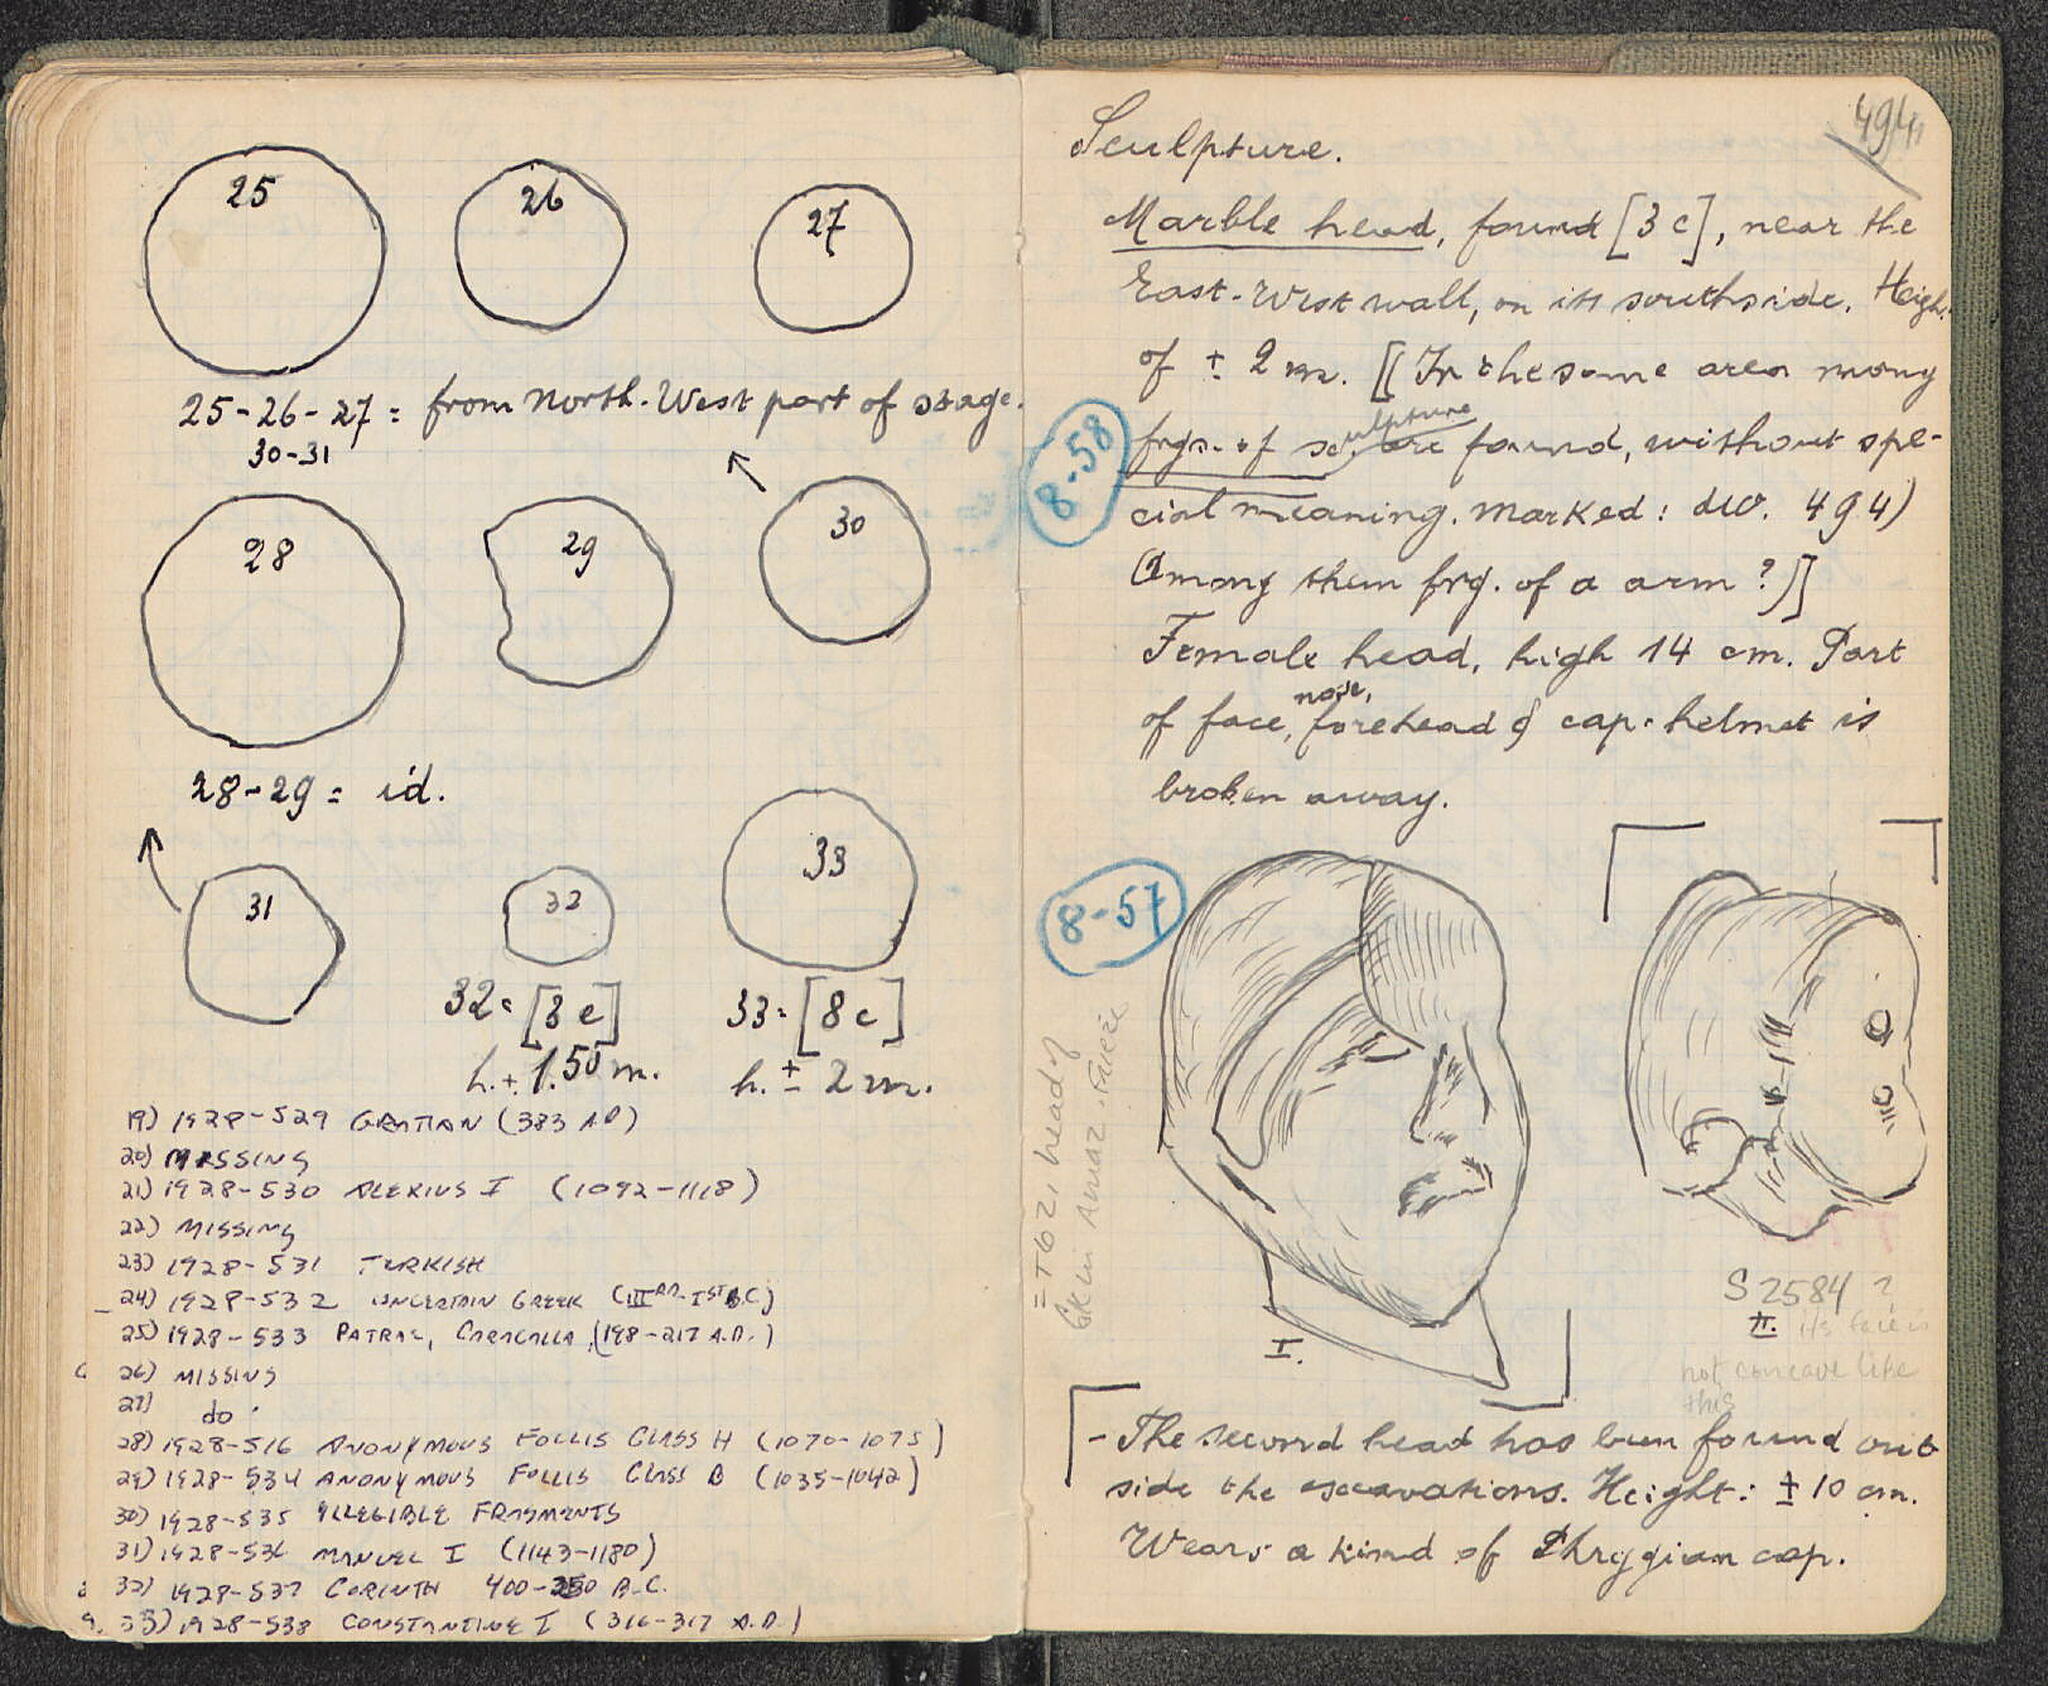 25
26
27
25-26-27 = from North-West part of stage.
30-31
28
29
30
28-29 = id.
31
32
33
32 = [3 e]
h. ± 1.50 m.
33 = [8 c]
h. ± 2 m.
19) 1928-529 GRATIAN (383 A.D)
20) MISSING
21) 1928-530 ALEXIUS I (1092-1118)
22) MISSING
23) 1928-531 TURKISH
24) 1928-532 UNCERTAIN GREEK (IIIRD-IST B.C)
25) 1928-533 PATRAE, CARACALLA (198-217 A.D.)
26) MISSING
27) do.
28) 1928-516 ANONYMOUS FOLLIS CLASS H (1070-1075)
29) 1928-534 ANONYMOUS FOLLIS CLASS B (1035-1042)
30) 1928-535 ILLEGIBLE FRAGMENTS
31) 1928-536 MANUEL I (1143-1180)
32) 1928-537 CORINTH 400-250 B.C.
33) 1928-538 CONSTANTINE I (316-317 A.D.)
494
Sculpture.
Marble head, found [3 c], near the
East-West wall, on its southside. Heigh.
of ± 2 m. [(In the same area many
frgs. of sculpture are found, without spe-
cial meaning. Marked: div. 494)
(Among them frg. of a arm?)]
8-58
Female head, high 14 cm. Part
of face, nose, forehead & cap-helmet is
broken away.
8-57
= T 621 head of
in Amaz. Frieze
I.
S 2584 ?
II. its face is
not concave like
this
- The second head has been found out
side the excavations. Height: ± 10 cm.
Wears a kind of Phrygian cap.